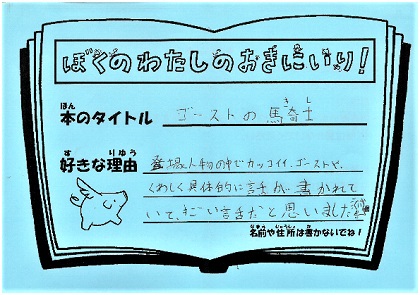 ぼくのわたしのおきにいり!
ほん
本のタイトル
ゴーストの騎士
きし
す りゆう
好きな理由
登場人物の中でカッコイイ、ゴーストや、
くわしく具体的に話が書かれて
いて、すごい話だと思いました
なまえ じゅうしょ か
名前や住所は書かないでね!